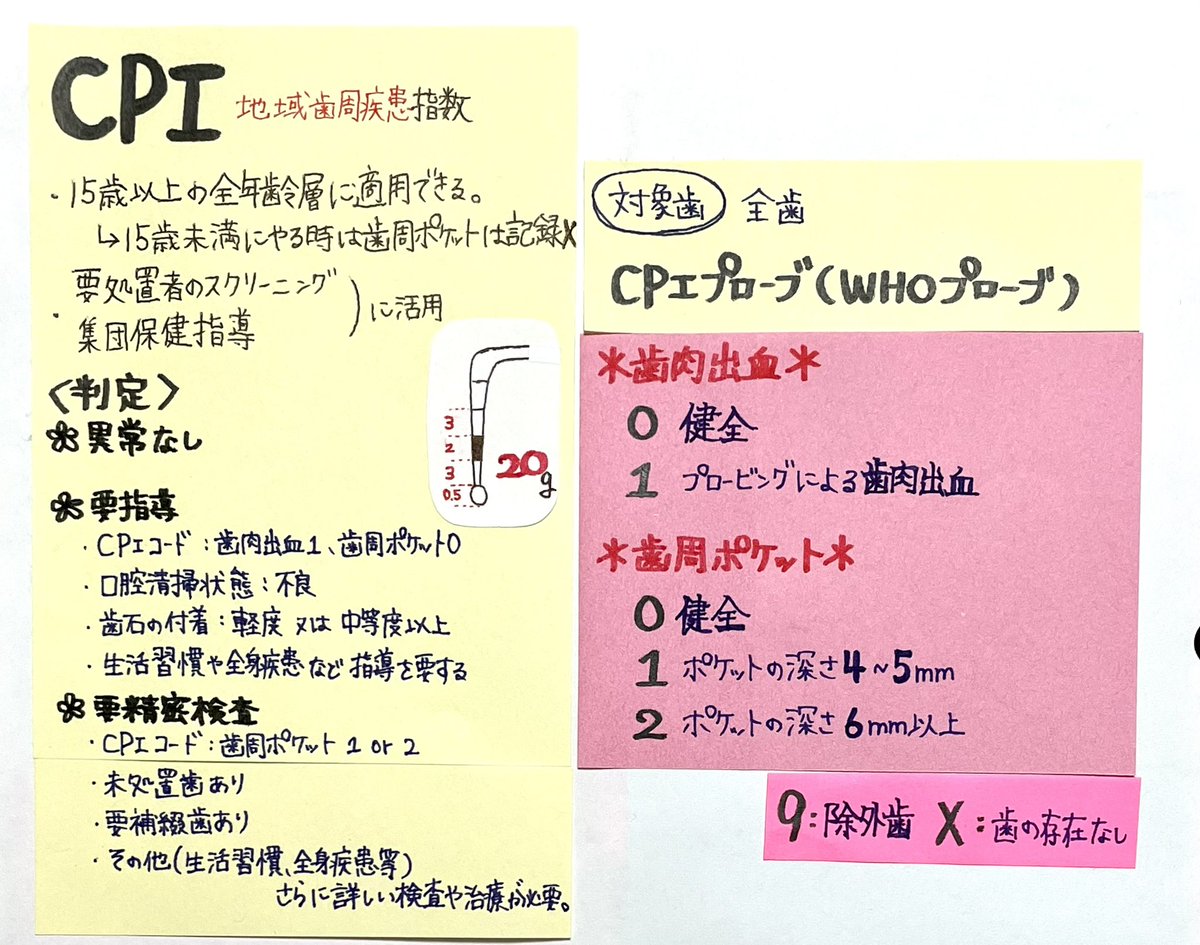 CPI 地域歯周疾患指数
・15歳以上の全年齢層に適用できる。
↳15歳未満にやる時は歯周ポケットは記録X
・要処置者のスクリーニング
集団保健指導
)に活用
〈判定〉
✽異常なし
✽要指導
・CPIコード：歯肉出血1、歯周ポケット0
・口腔清掃状態：不良
・歯石の付着：軽度 又は 中等度以上
・生活習慣や全身疾患など指導を要する
✽要精密検査
・CPIコード：歯周ポケット 1 or 2
・未処置歯あり
・要補綴歯あり
・その他(生活習慣、全身疾患等)
さらに詳しい検査や治療が必要。
3
2
3
0.5
20g
対象歯 全歯
CPIプローブ(WHOプローブ)
*歯肉出血*
0 健全
1 プロービングによる歯肉出血
*歯周ポケット*
0 健全
1 ポケットの深さ4~5mm
2 ポケットの深さ6mm以上
9：除外歯 X：歯の存在なし